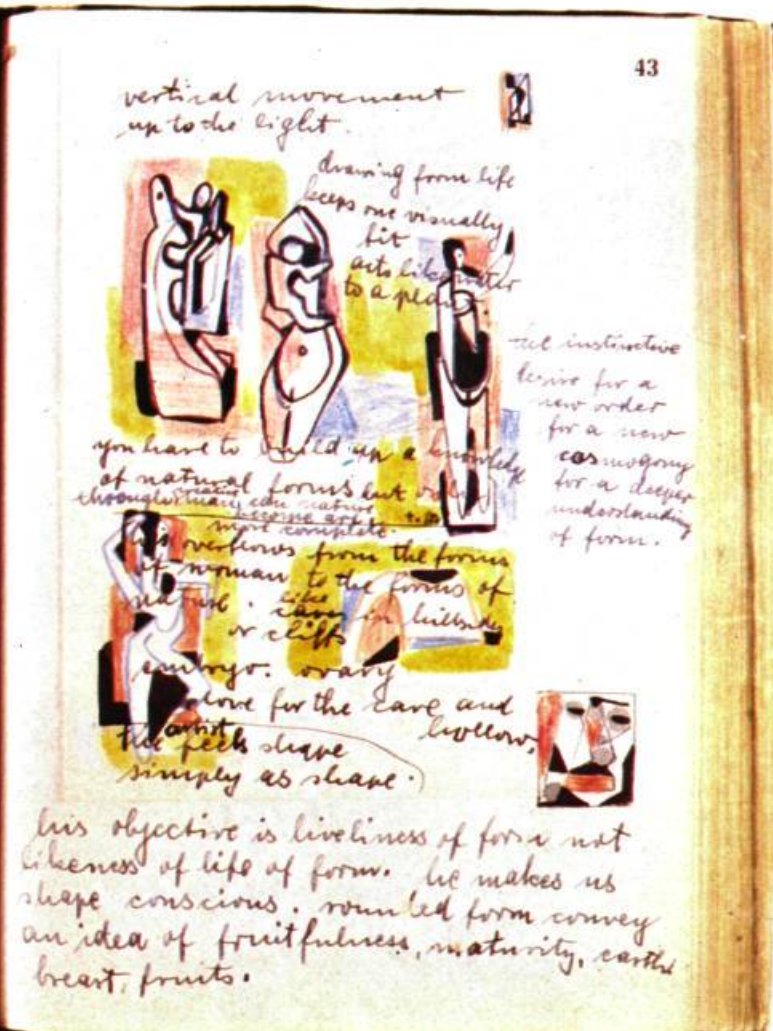 43
vertical movement
up to the light.
drawing from life
keeps one visually
fit
acts like water
to a plant.
the instinctive
desire for a
new order
for a new
cosmogony
for a deeper
understanding
of form.
you have to build up a knowledge
of natural forms but only
through can nature
become art
more complete.
life overflows from the forms
of woman to the forms of
nature. like
caves in hillsides
or cliffs
embryo. ovary
love for the cave and
hollow,
the artist feels shape
simply as shape.
his objective is liveliness of form not
likeness of life of form. he makes us
shape conscious. rounded form convey
an idea of fruitfulness, maturity, earth
breast, fruits.